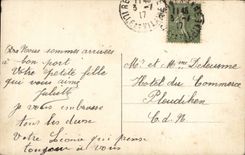 VITRÉ
17
Nous sommes arrivés
à bon port
Votre petite fille
qui vous aime
Juliette
Je vous embrasse
tous les deux
Votre qui pense
toujours à vous
Mr et Mme Delusme
Hotel du Commerce
Ploudihen
C.d.N